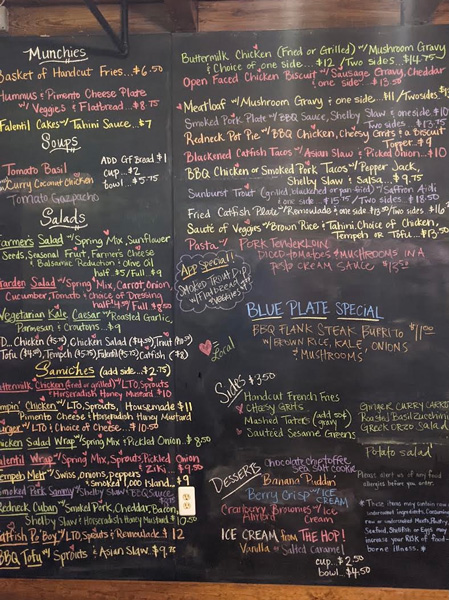 Munchies
Basket of Handcut Fries...$6.50
Hummus & Pimento Cheese Plate
w/ Veggies & Flatbread...$8.75
Falentil Cakes w/ Tahini Sauce...$7
Soups
Tomato Basil
Curry Coconut Chicken
Tomato Gazpacho
ADD GF Bread $1
cup...$2
bowl...$5.75
Salads
Farmers Salad w/ Spring Mix, Sunflower
Seeds, Seasonal Fruit, Farmer's Cheese
& Balsamic Reduction & Olive Oil
half $5/Full $9
Garden Salad w/ Spring Mix, Carrot, Onion,
Cucumber, Tomato & Choice of Dressing
Vegetarian Kale Caesar w/ Roasted Garlic,
Parmesan & Croutons...$9
Samiches (add side...$2.75)
Buttermilk Chicken (fried or grilled) w/ LTO, Sprouts
& Horseradish Honey Mustard $10
Chicken w/ LTO, Sprouts, Housemade $11
Pimento Cheese & Horseradish Honey Mustard
w/ LTO & Choice of Cheese...$10.50
Chicken Salad Wrap w/ Spring Mix & Pickled Onion
Falentil Wrap w/ Spring Mix, Sprouts, Pickled Onion
Tempeh Melt w/ Swiss, onions, peppers
& Smoked 1,000 Island...$9
Smoked Pork Sammy w/ Shelby Slaw & BBQ Sauce
Redneck Cuban w/ Smoked Pork, Cheddar, Bacon,
Shelby Slaw & Horseradish Honey Mustard
Catfish Po'Boy w/ LTO, Sprouts & Remoulade $12
BBQ Tofu w/ Sprouts & Asian Slaw...$9.75
Buttermilk Chicken (Fried or Grilled) w/ Mushroom Gravy
& Choice of one side...$12 / Two sides...$14.75
Open Faced Chicken Biscuit w/ Sausage Gravy, Cheddar
& one side...$13.50
Meatloaf w/ Mushroom Gravy & one side...$11 / Two sides
Smoked Pork Plate w/ BBQ Sauce, Shelby Slaw & one side
Two sides...$13.75
Redneck Pot Pie w/ BBQ Chicken, Cheesy Grits & a Biscuit
Topper...$9
Blackened Catfish Tacos w/ Asian Slaw & Picked Onion...$10
BBQ Chicken or Smoked Pork Tacos w/ Pepper Jack,
Shelby Slaw & Salsa...$9.75
Sunburst Trout (grilled, blackened or pan fried) w/ Saffron Aioli
& one side...$15.75 / Two sides...$18.50
Fried Catfish Plate w/ Remoulade & one side $13.50/Two sides $16
Sauté of Veggies w/ Brown Rice & Tahini, Choice of Chicken,
Tempeh or Tofu...$13.50
Pasta w/ Pork Tenderloin
Diced tomatoes & Mushrooms in a
pesto cream sauce
App Special!
Smoked Trout Dip
w/ Flatbread &
Veggies
Local
BLUE PLATE SPECIAL
BBQ FLANK STEAK BURRITO $11.00
w/ BROWN RICE, KALE, ONIONS
& MUSHROOMS
Sides $3.50
Handcut French Fries
Cheesy Grits
Mashed Taters (add 50¢ gravy)
Sautéed Sesame Greens
GINGER CURRY CARROTS
Roasted Basil Zucchini
GREEK ORZO Salad
Potato salad
Desserts
Chocolate chip toffee
sea salt cookie
Banana Puddin'
Berry Crisp w/ ICE
CREAM
Cranberry Brownies w/ Ice
Almond Cream
ICE CREAM from THE HOP!
Vanilla or Salted Caramel
cup...$2.50
bowl...$4.50
Please alert us of any food
allergies before you order.